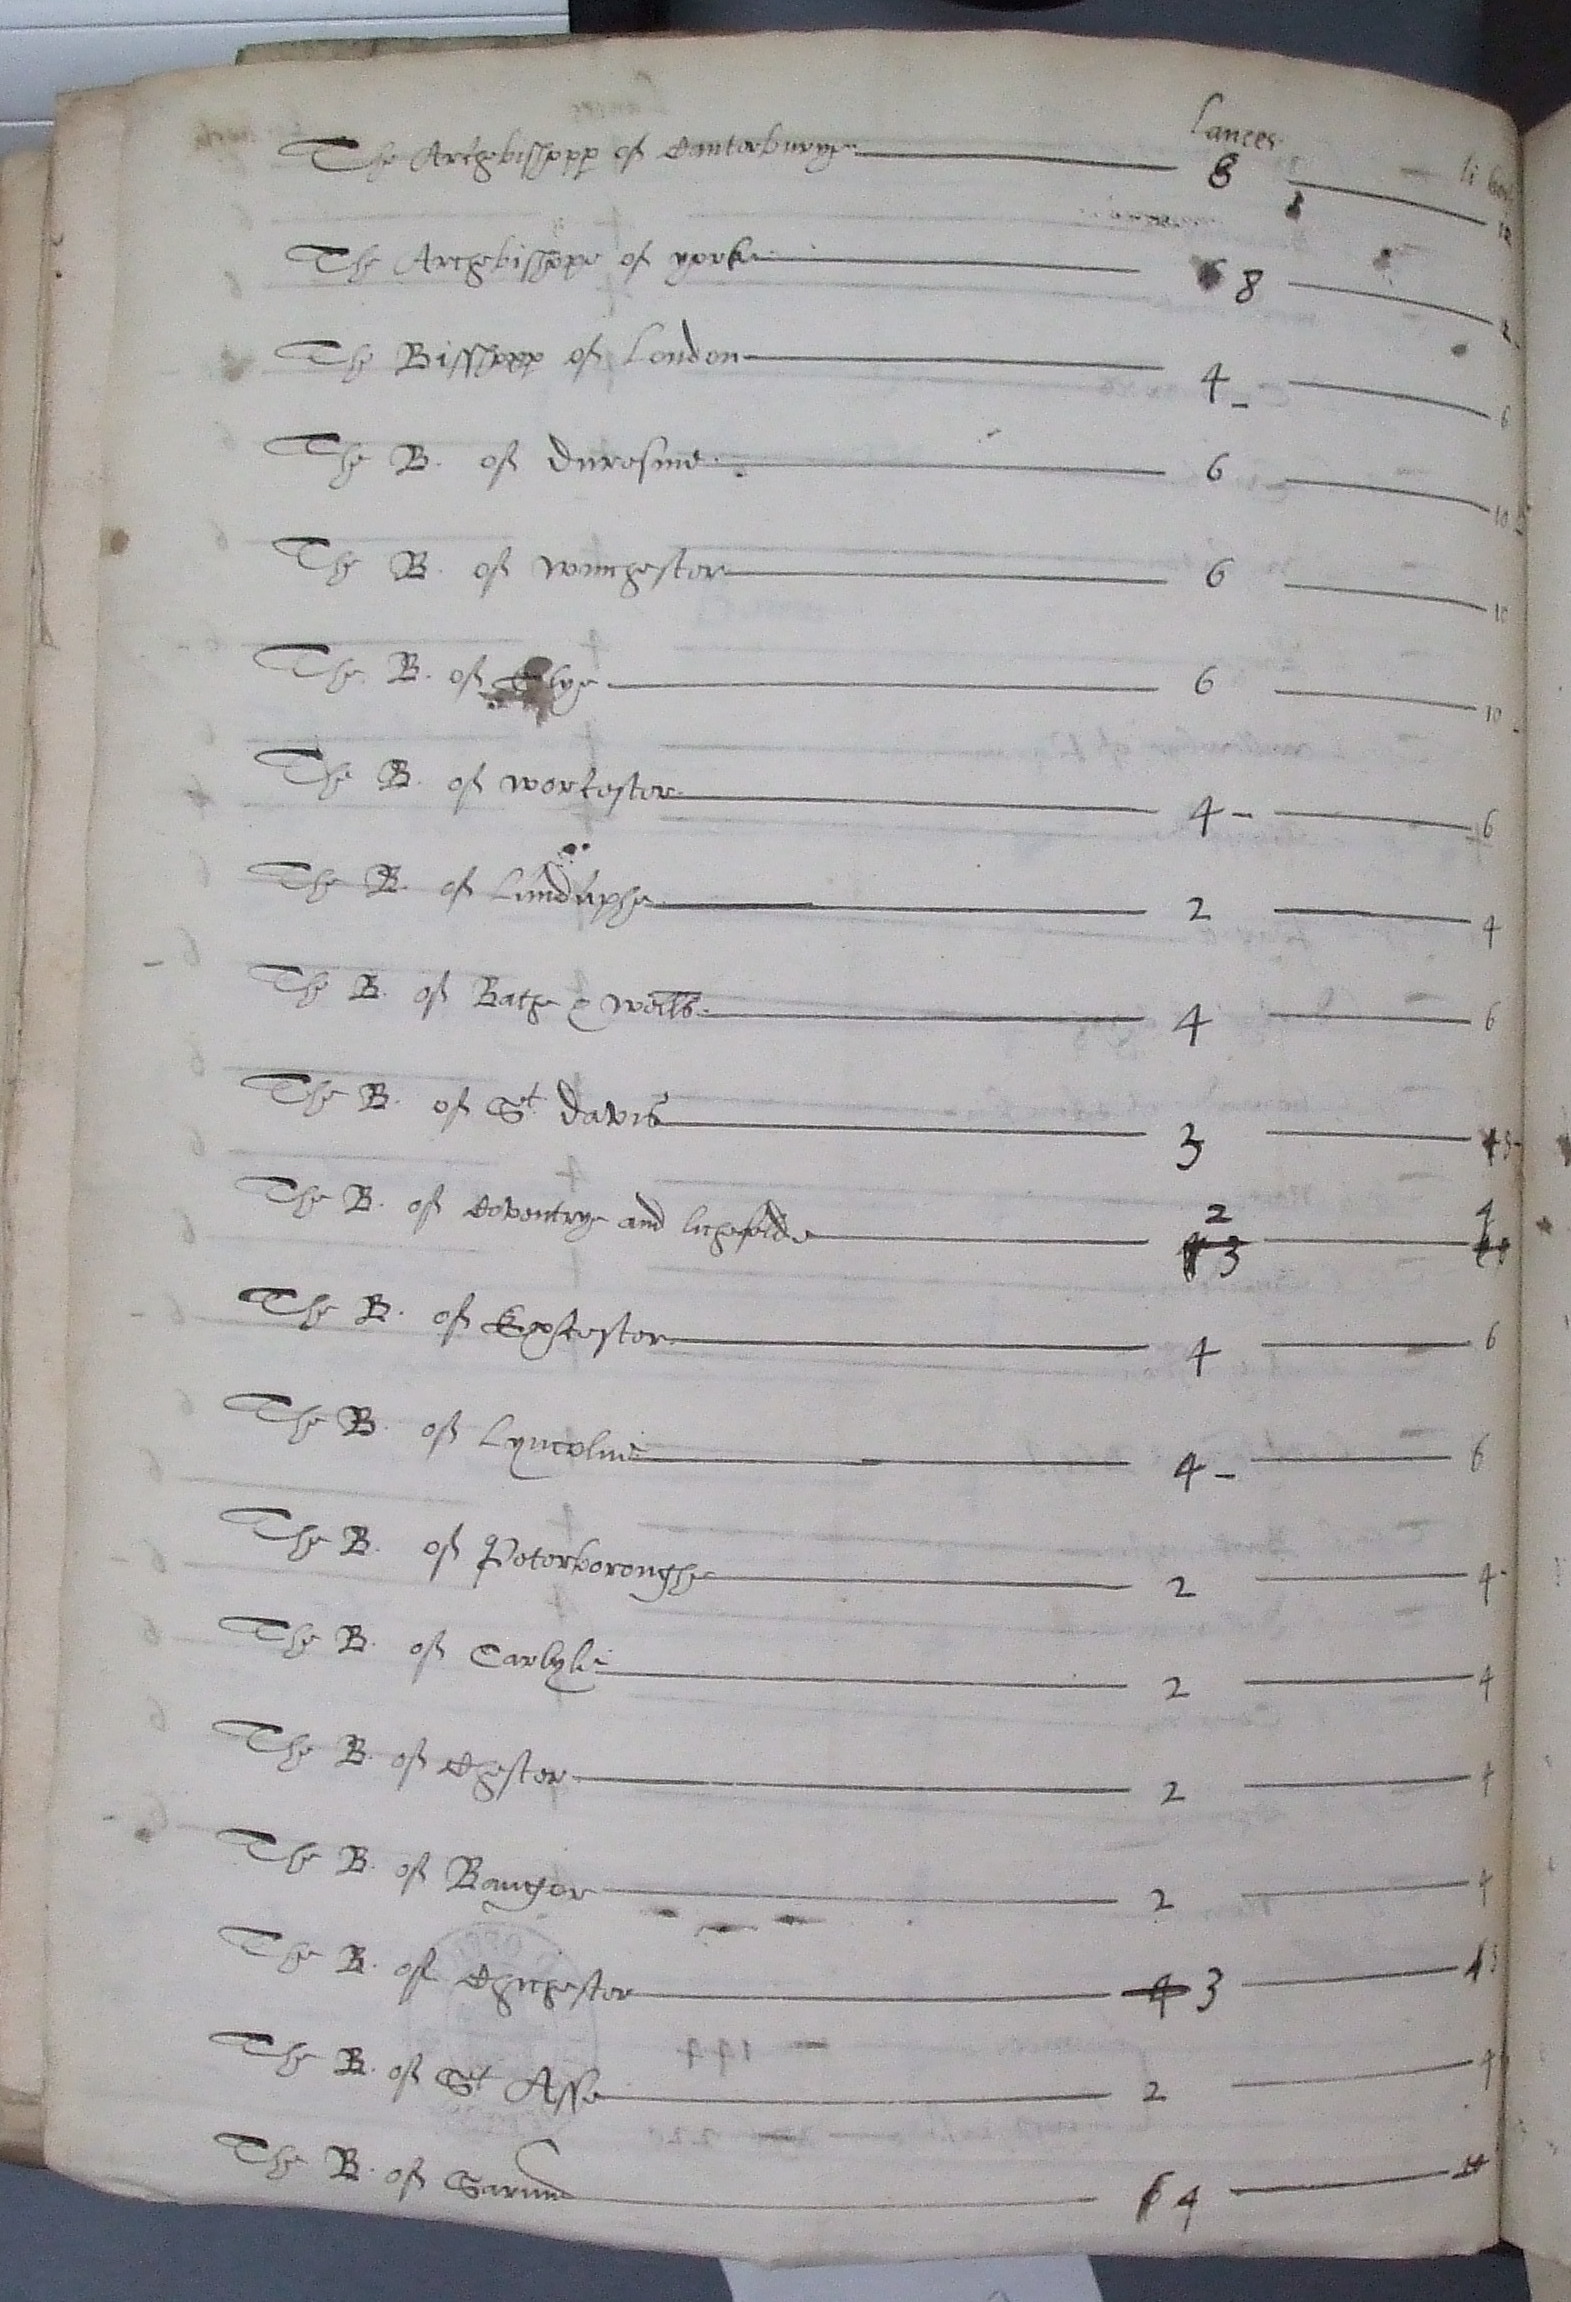 Lances
The Archebisshopp of Canterburye 8
The Archebisshope of yorke 8
The Bisshopp of London 4 6
The B. of Duresme 6 10
The B. of Winchester 6 10
The B. of Elye 6 10
The B. of Worcester 4 6
The B. of Landaphe 2 4
The B. of Bathe & Wells 4 6
The B. of St Davis 3
The B. of Coventrye and lichefelde 2 3 4
The B. of Excester 4 6
The B. of Lyncolne 4 6
The B. of Peterboroughe 2 4
The B. of Carlyle 2 4
The B. of Chester 2 4
The B. of Bangor 2 4
The B. of Chichester 4 3
The B. of St Asse 2 4
The B. of Sarum 4